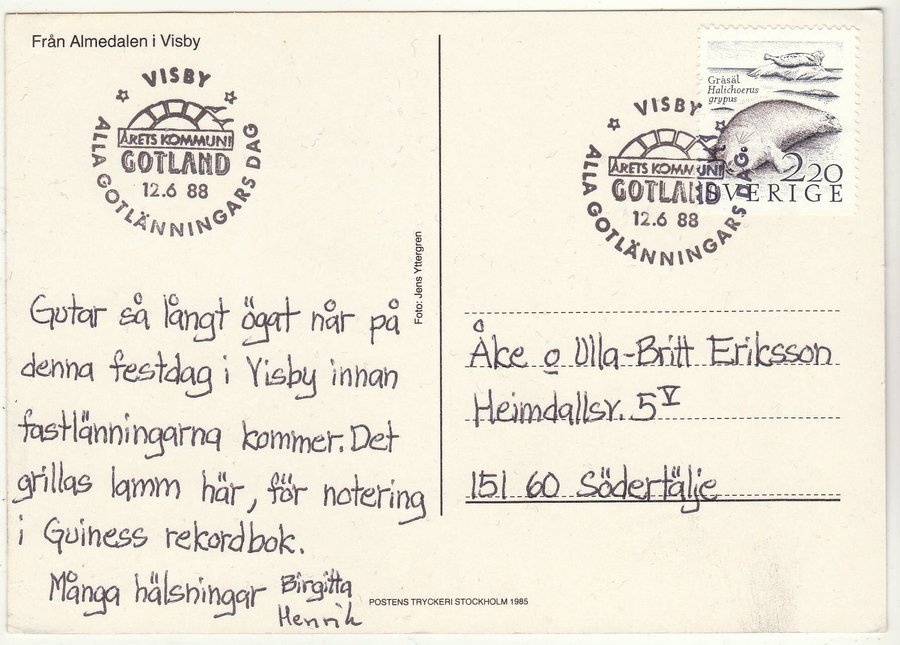 Från Almedalen i Visby
VISBY
ÅRETS KOMMUN!
GOTLAND
12.6 88
ALLA GOTLÄNNINGARS DAG
Gutar så långt ögat når på
denna festdag i Visby innan
fastlänningarna kommer. Det
grillas lamm här, för notering
i Guiness rekordbok.
Många hälsningar Birgitta
Henrik
Foto: Jens Yttergren
POSTENS TRYCKERI STOCKHOLM 1985
Gråsäl
Halichoerus
grypus
2.20
SVERIGE
VISBY
ÅRETS KOMMUN!
GOTLAND
12.6 88
ALLA GOTLÄNNINGARS DAG
Åke o Ulla-Britt Eriksson
Heimdallsv. 5 V
151 60 Södertälje